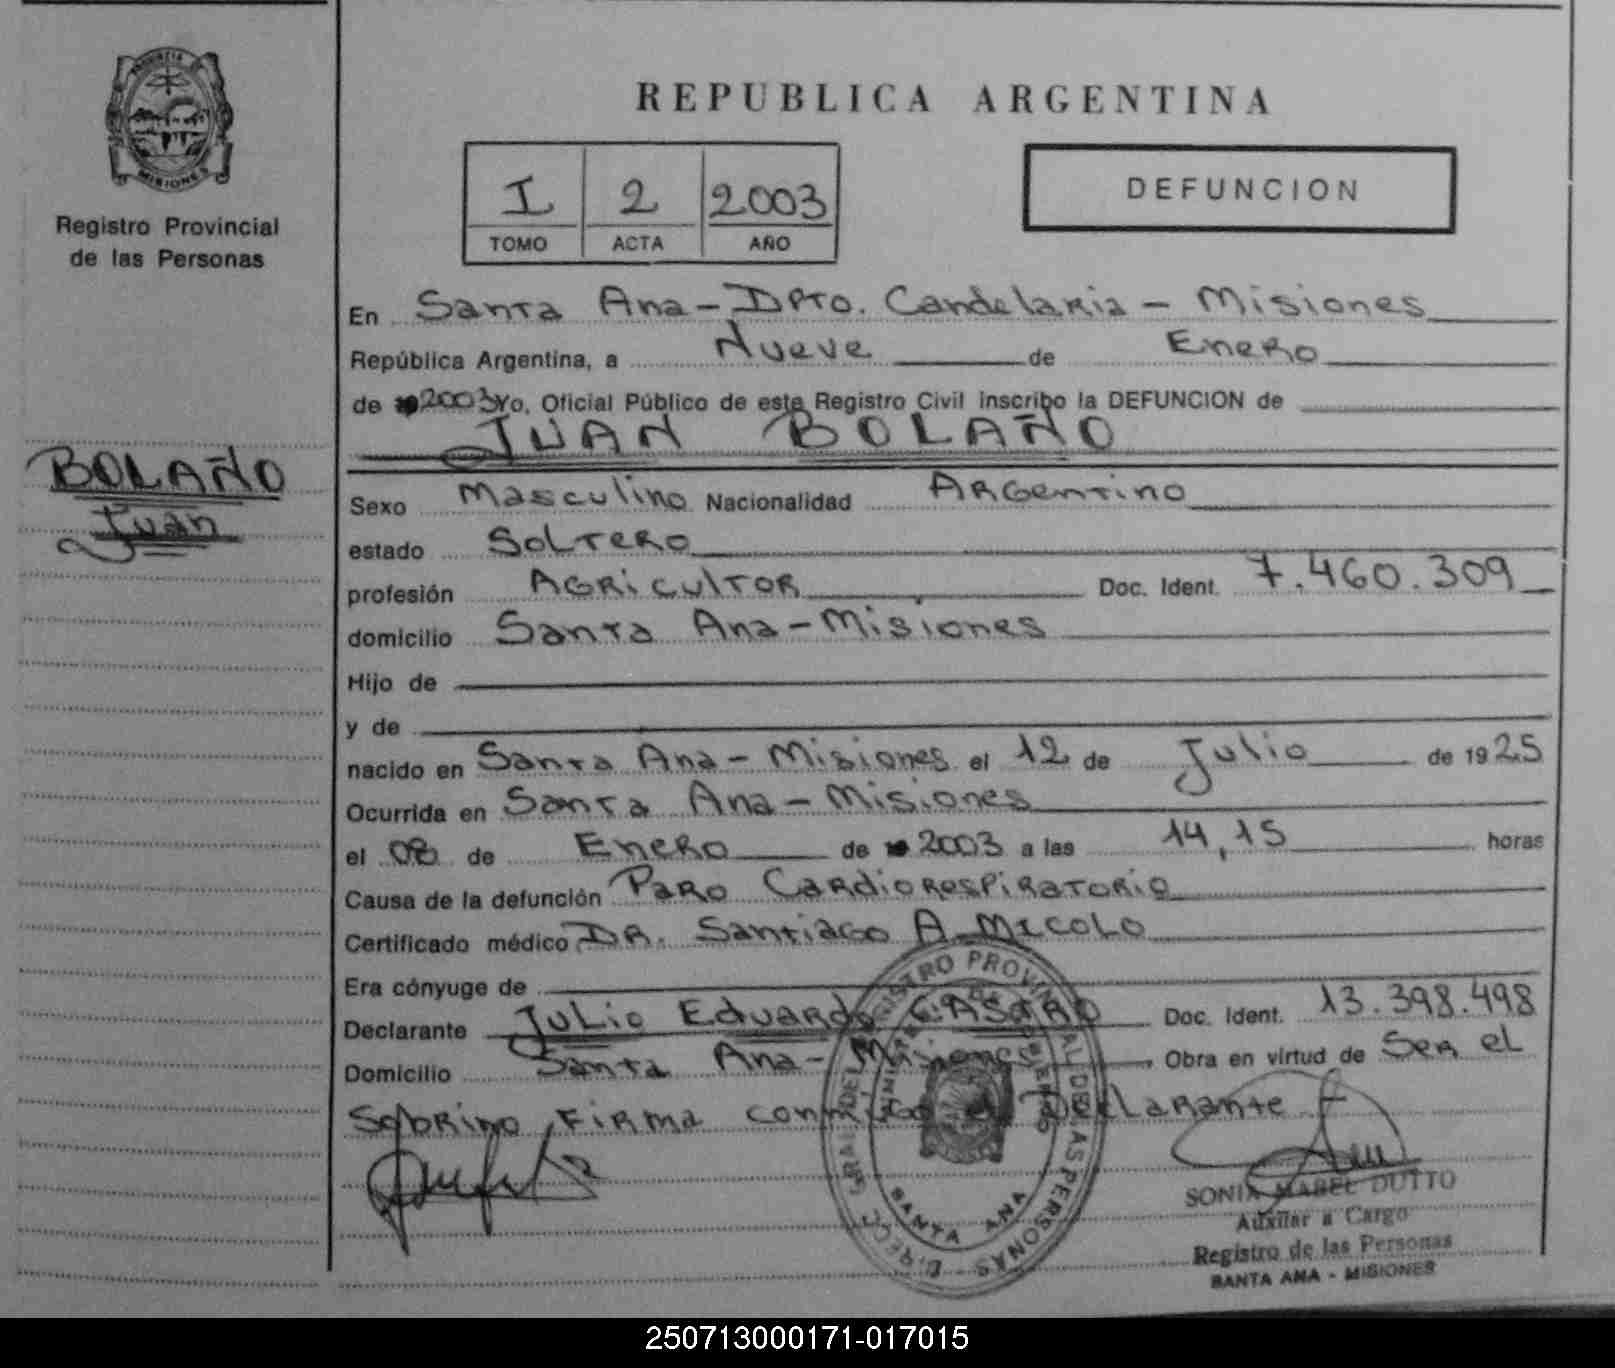 PROVINCIA
MISIONES
Registro Provincial
de las Personas
BOLAÑO
Juan
REPUBLICA ARGENTINA
I 2 2003
TOMO ACTA AÑO
DEFUNCION
En Santa Ana - Dpto. Candelaria - Misiones
República Argentina, a Nueve de Enero
de 2003 Yo, Oficial Público de este Registro Civil inscribo la DEFUNCION de
JUAN BOLAÑO
Sexo Masculino Nacionalidad Argentino
estado Soltero
profesión Agricultor Doc. Ident. 7.460.309
domicilio Santa Ana - Misiones
Hijo de
y de
nacido en Santa Ana - Misiones el 12 de Julio de 1925
Ocurrida en Santa Ana - Misiones
el 08 de Enero de 2003 a las 14,15 horas
Causa de la defunción Paro Cardiorespiratorio
Certificado médico DR. Santiago A. Micolo
Era cónyuge de
Declarante Julio Eduardo CASTRO Doc. Ident. 13.398.498
Domicilio Santa Ana - Misiones, Obra en virtud de Ser el
Sobrino Firma conmigo el Declarante
SONIA MABEL DUTTO
Auxiliar a Cargo
Registro de las Personas
SANTA ANA - MISIONES
PROVINCIAL DE LAS PERSONAS
SANTA ANA
250713000171-017015